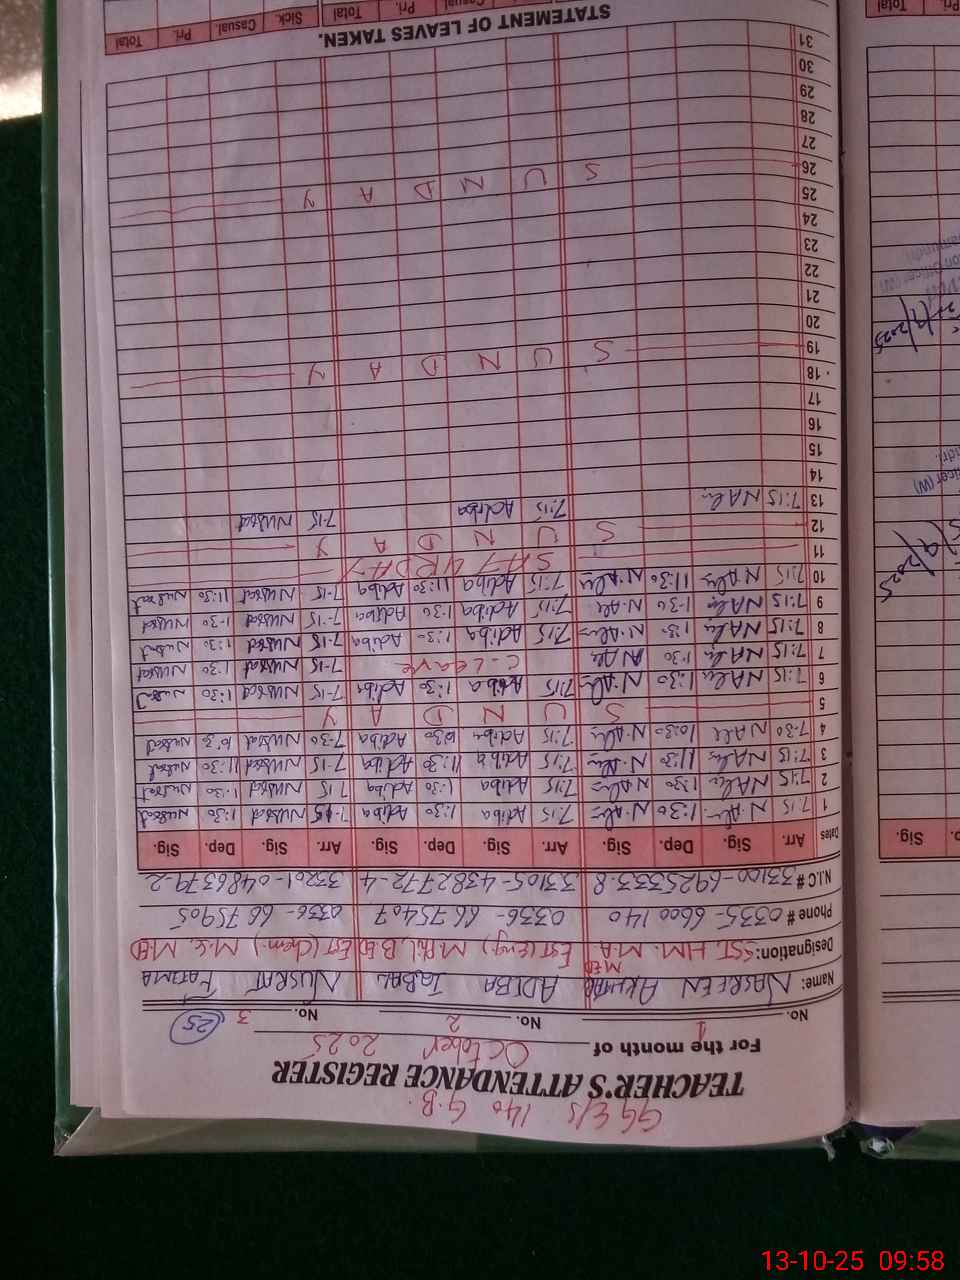 GGE/S 140 G.B.
TEACHER'S ATTENDANCE REGISTER
For the month of October 2025
No. 1 No. 2 No. 3 25
Name: NASREEN AKHTAR ADIBA IQBAL NUSRAT FATIMA
Designation: SST. HM. M.A M.ED EST (eng) M.Phil, B.ED EST (chem.) M.Sc. M.ED
Phone # 0335-6600140 0336-6675407 0336-6675905
N.I.C # 33100-6925333-8 33105-4382772-4 33201-0486379-2
Dates Arr. Sig. Dep. Sig. Arr. Sig. Dep. Sig. Arr. Sig. Dep. Sig.
1 7:15 N Ali 1:30 N.Ali 7:15 Adiba 1:30 Adiba 7-15 Nusrat 1:30 Nusrat
2 7:15 N Ali 1:30 N.Ali 7:15 Adiba 1:30 Adiba 7:15 Nusrat 1:30 Nusrat
3 7:15 N Ali 11:30 N.Ali 7:15 Adiba 11:30 Adiba 7-15 Nusrat 11:30 Nusrat
4 7-30 N Ali 10:30 N.Ali 7:15 Adiba 10:30 Adiba 7-30 Nusrat Nusrat
5 S U N D A Y
6 7:15 N Ali 1:30 N.Ali 7:15 Adiba 1:30 Adiba 7-15 Nusrat 1:30 Nusrat
7 7:15 N Ali 1:30 N Ali C-Leave 7-15 Nusrat 1:30 Nusrat
8 7:15 N Ali 1:30 N.Ali 7:15 Adiba 1:30 Adiba 7-15 Nusrat 1:30 Nusrat
9 7:15 N Ali 1-30 N.Ali 7:15 Adiba 1:30 Adiba 7-15 Nusrat 1-30 Nusrat
10 7:15 N Ali 11:30 N.Ali 7:15 Adiba 11:30 Adiba 7-15 Nusrat 11:30 Nusrat
11 SATURDAY
12 S U N D A Y
13 7:15 N Ali 7:15 Adiba 7-15 Nusrat
14
15
16
17
18
19 S U N D A Y
20
21
22
23
24
25
26 S U N D A Y
27
28
29
30
31
STATEMENT OF LEAVES TAKEN.
Sick. Casual Pri. Total
13-10-25 09:58